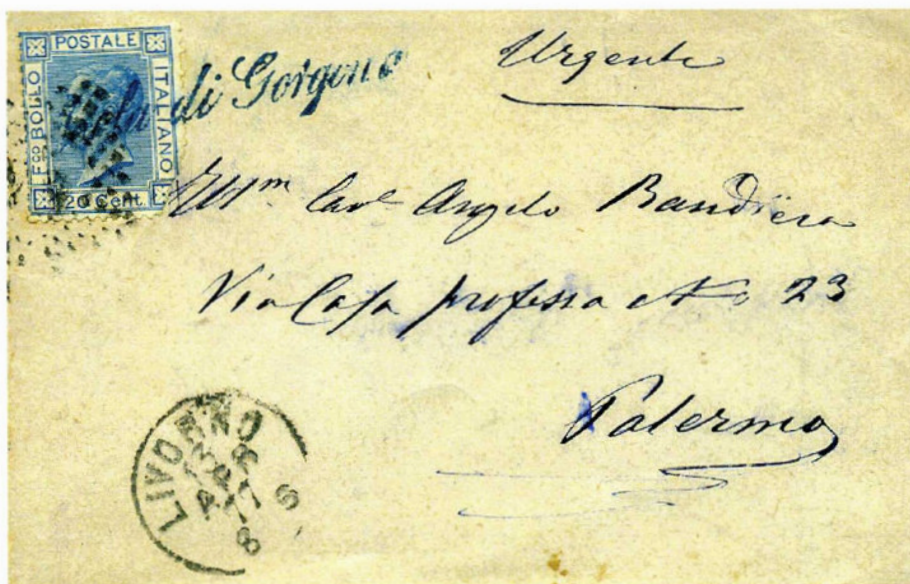 POSTALE
F.co BOLLO
ITALIANO
20 Cent.
di Gorgona
Urgente
Ill.m Cav. Angelo Bandiera
Via Casa professa No 23
Palermo
LIVORNO